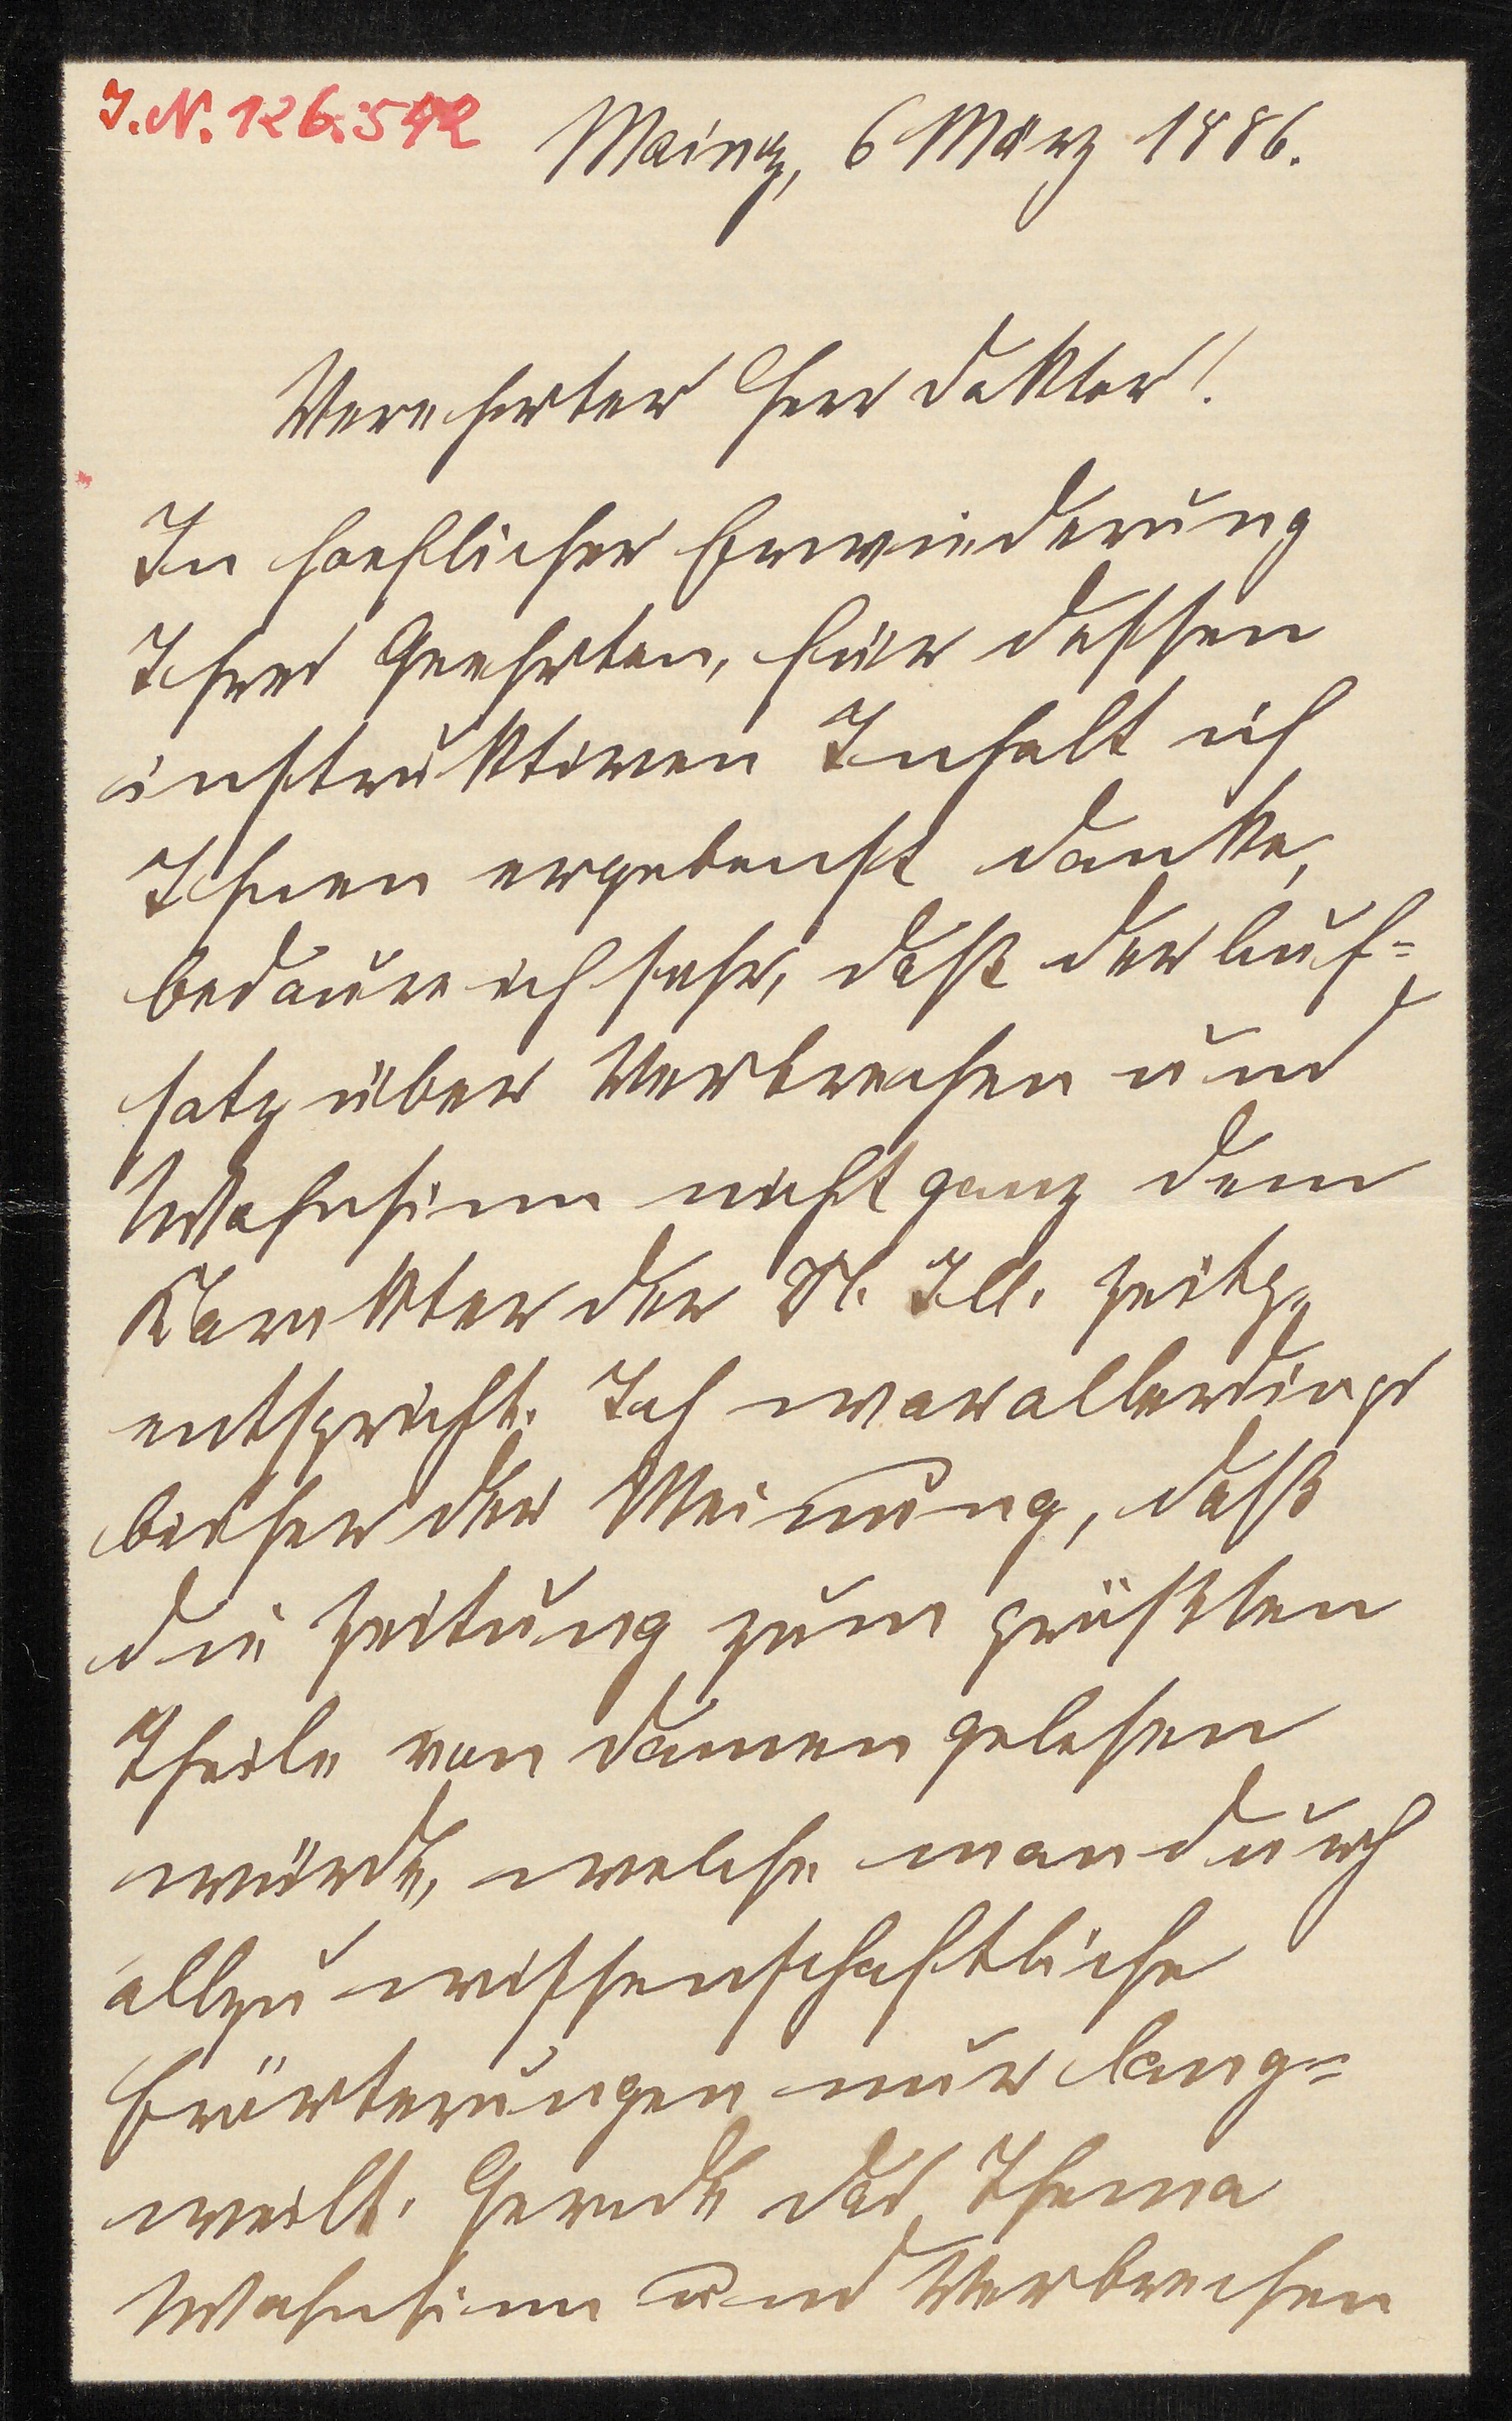 J.N. 126.542
Mainz, 6 März 1886.
Verehrter Herr Doktor!
In hoeflicher Erwiederung
Ihres Geehrten, für dessen
instruktiven Inhalt ich
Ihnen ergebenst danke,
bedaure ich sehr, daß der Auf=
satz über Verbrechen und
Wahnsinn nicht ganz dem
Karakter der N. Ill. Zeitg.
entspricht. Ich war allerdings
bisher der Meinung, daß
die Zeitung zum größten
Theile von Damen gelesen
würde, welche man durch
allzu wissenschaftliche
Erörterungen nur lang=
weilt. Gerade das Thema
Wahnsinn und Verbrechen